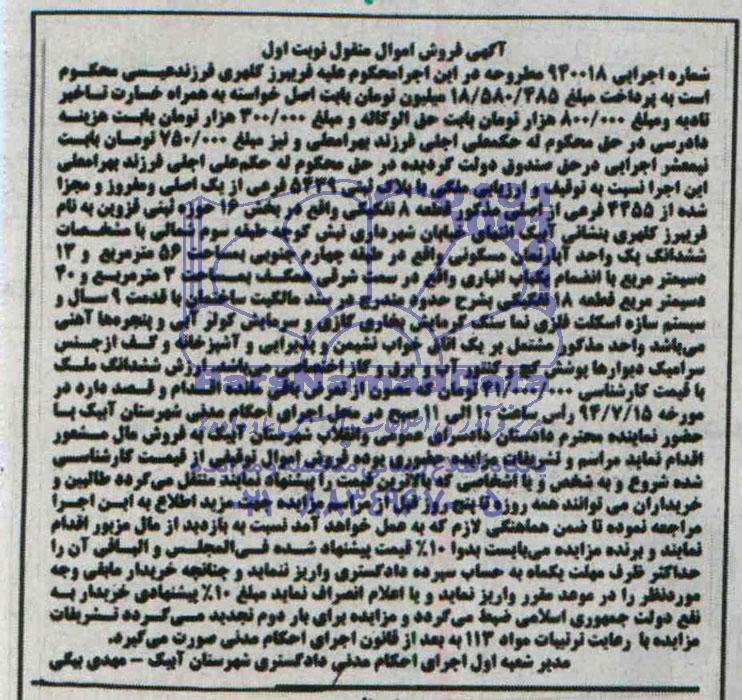 آگهی فروش اموال منقول نوبت اول
شماره اجرایی ۹۴۰۰۱۸ مطروحه در این اجرا محکوم علیه فریبرز کلهری فرزند عیسی محکوم
است به پرداخت مبلغ ۱۸/۵۸۰/۴۸۵ میلیون تومان بابت اصل خواسته به همراه خسارت تاخیر
تادیه و مبلغ ۸۰۰/۰۰۰ هزار تومان بابت حق الوکاله و مبلغ ۳۰۰/۰۰۰ هزار تومان بابت هزینه
دادرسی در حق محکوم له حکمعلی اجلی فرزند بهرامعلی و نیز مبلغ ۷۵۰/۰۰۰ تومان بابت
نیمعشر اجرایی در حق صندوق دولت گردیده در حق محکوم له حکم علی اجلی فرزند بهرامعلی
این اجرا نسبت به توقیف و ارزیابی ملکی با پلاک ثبتی ۵۴۳۹ فرعی از یک اصلی ومفروز و مجزا
شده از ۴۳۵۵ فرعی از اصلی مذکور قطعه ۸ تفکیکی واقع در بخش ۱۶ حوزه ثبتی قزوین به نام
فریبرز کلهری بنشانی آبیک خیابان شهرداری نبش کوچه طبقه سوم شمالی با مشخصات
ششدانگ یک واحد آپارتمان مسکونی واقع در طبقه چهارم جنوبی بمساحت ۵۶ مترمربع و ۱۳
دسیمتر مربع با انضمام یکباب انباری واقع در سمت شرقی همکف بمساحت ۳ مترمربع و ۴۰
دسیمتر مربع قطعه ۱۸ تفکیکی بشرح حدود مندرج در سند مالکیت ساختمان با قدمت ۹ سال و
سیستم سازه اسکلت فلزی نما سنگ گرمایش بخاری گازی و سرمایش کولر آبی و پنجره‌ها آهنی
می‌باشد واحد مذکور مشتمل بر یک اتاق خواب نشیمن و پذیرایی و آشپزخانه و کف از جنس
سرامیک دیوارها پوشش گچ و کنتور آب و برق و گاز اختصاصی می‌باشد ارزش ششدانگ ملک
با قیمت کارشناسی تومان که مصون از تعرض باقی مانده اقدام و قصد دارد در
مورخه ۹۴/۷/۱۵ رأس ساعت ۱۰ الی ۱۱ صبح در محل اجرای احکام مدنی شهرستان آبیک با
حضور نماینده محترم دادستان دادسرای عمومی وانقلاب شهرستان آبیک به فروش مال مذکور
اقدام نماید مراسم و تشریفات مزایده حضوری بوده فروش اموال توقیفی از قیمت کارشناسی
شده شروع و به شخص و یا اشخاصی که بالاترین قیمت را پیشنهاد نمایند منتقل می‌گردد طالبین و
خریداران می توانند همه روزه تا پنج روز قبل از موعد مزایده جهت مزید اطلاع به این اجرا
مراجعه نموده تا ضمن هماهنگی لازم که به عمل خواهد آمد نسبت به بازدید از مال مزبور اقدام
نمایند و برنده مزایده می‌بایست بدوا ۱۰٪ قیمت پیشنهاد شده فی‌المجلس و الباقی آن را
حداکثر ظرف مهلت یکماه به حساب سپرده دادگستری واریز نماید و چنانچه خریدار مابقی وجه
موردنظر را در موعد مقرر واریز نماید و یا اعلام انصراف نماید مبلغ ۱۰٪ پیشنهادی خریدار به
نفع دولت جمهوری اسلامی ضبط می‌گردد و مزایده برای بار دوم تجدید می‌گردد تشریفات
مزایده با رعایت ترتیبات مواد ۱۱۳ به بعد از قانون اجرای احکام مدنی صورت می‌گیرد.
مدیر شعبه اول اجرای احکام مدنی دادگستری شهرستان آبیک – مهدی بیکی
ParsNamadData
پایگاه اطلاع رسانی مناقصه و مزایده
۰۲۱-۸۸۳۴۹۶۷۰-۵